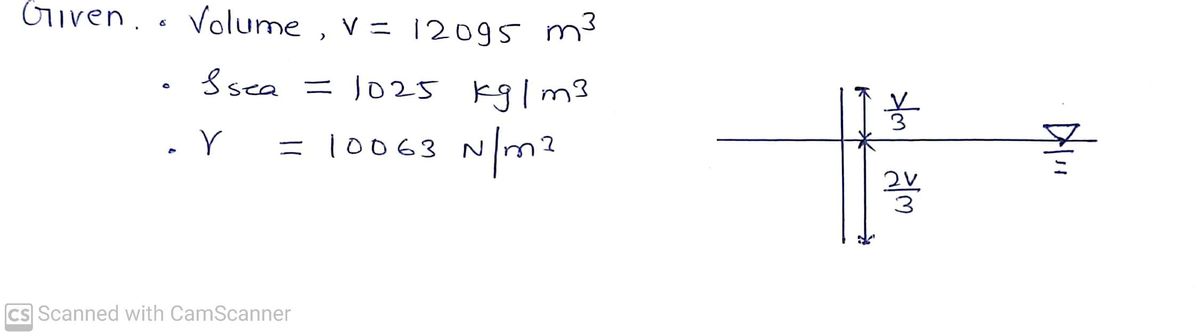 Given. • Volume, V = 12095 m³
• ρsea = 1025 kg/m³
• γ = 10063 N/m²
V/3
2V/3
CS Scanned with CamScanner